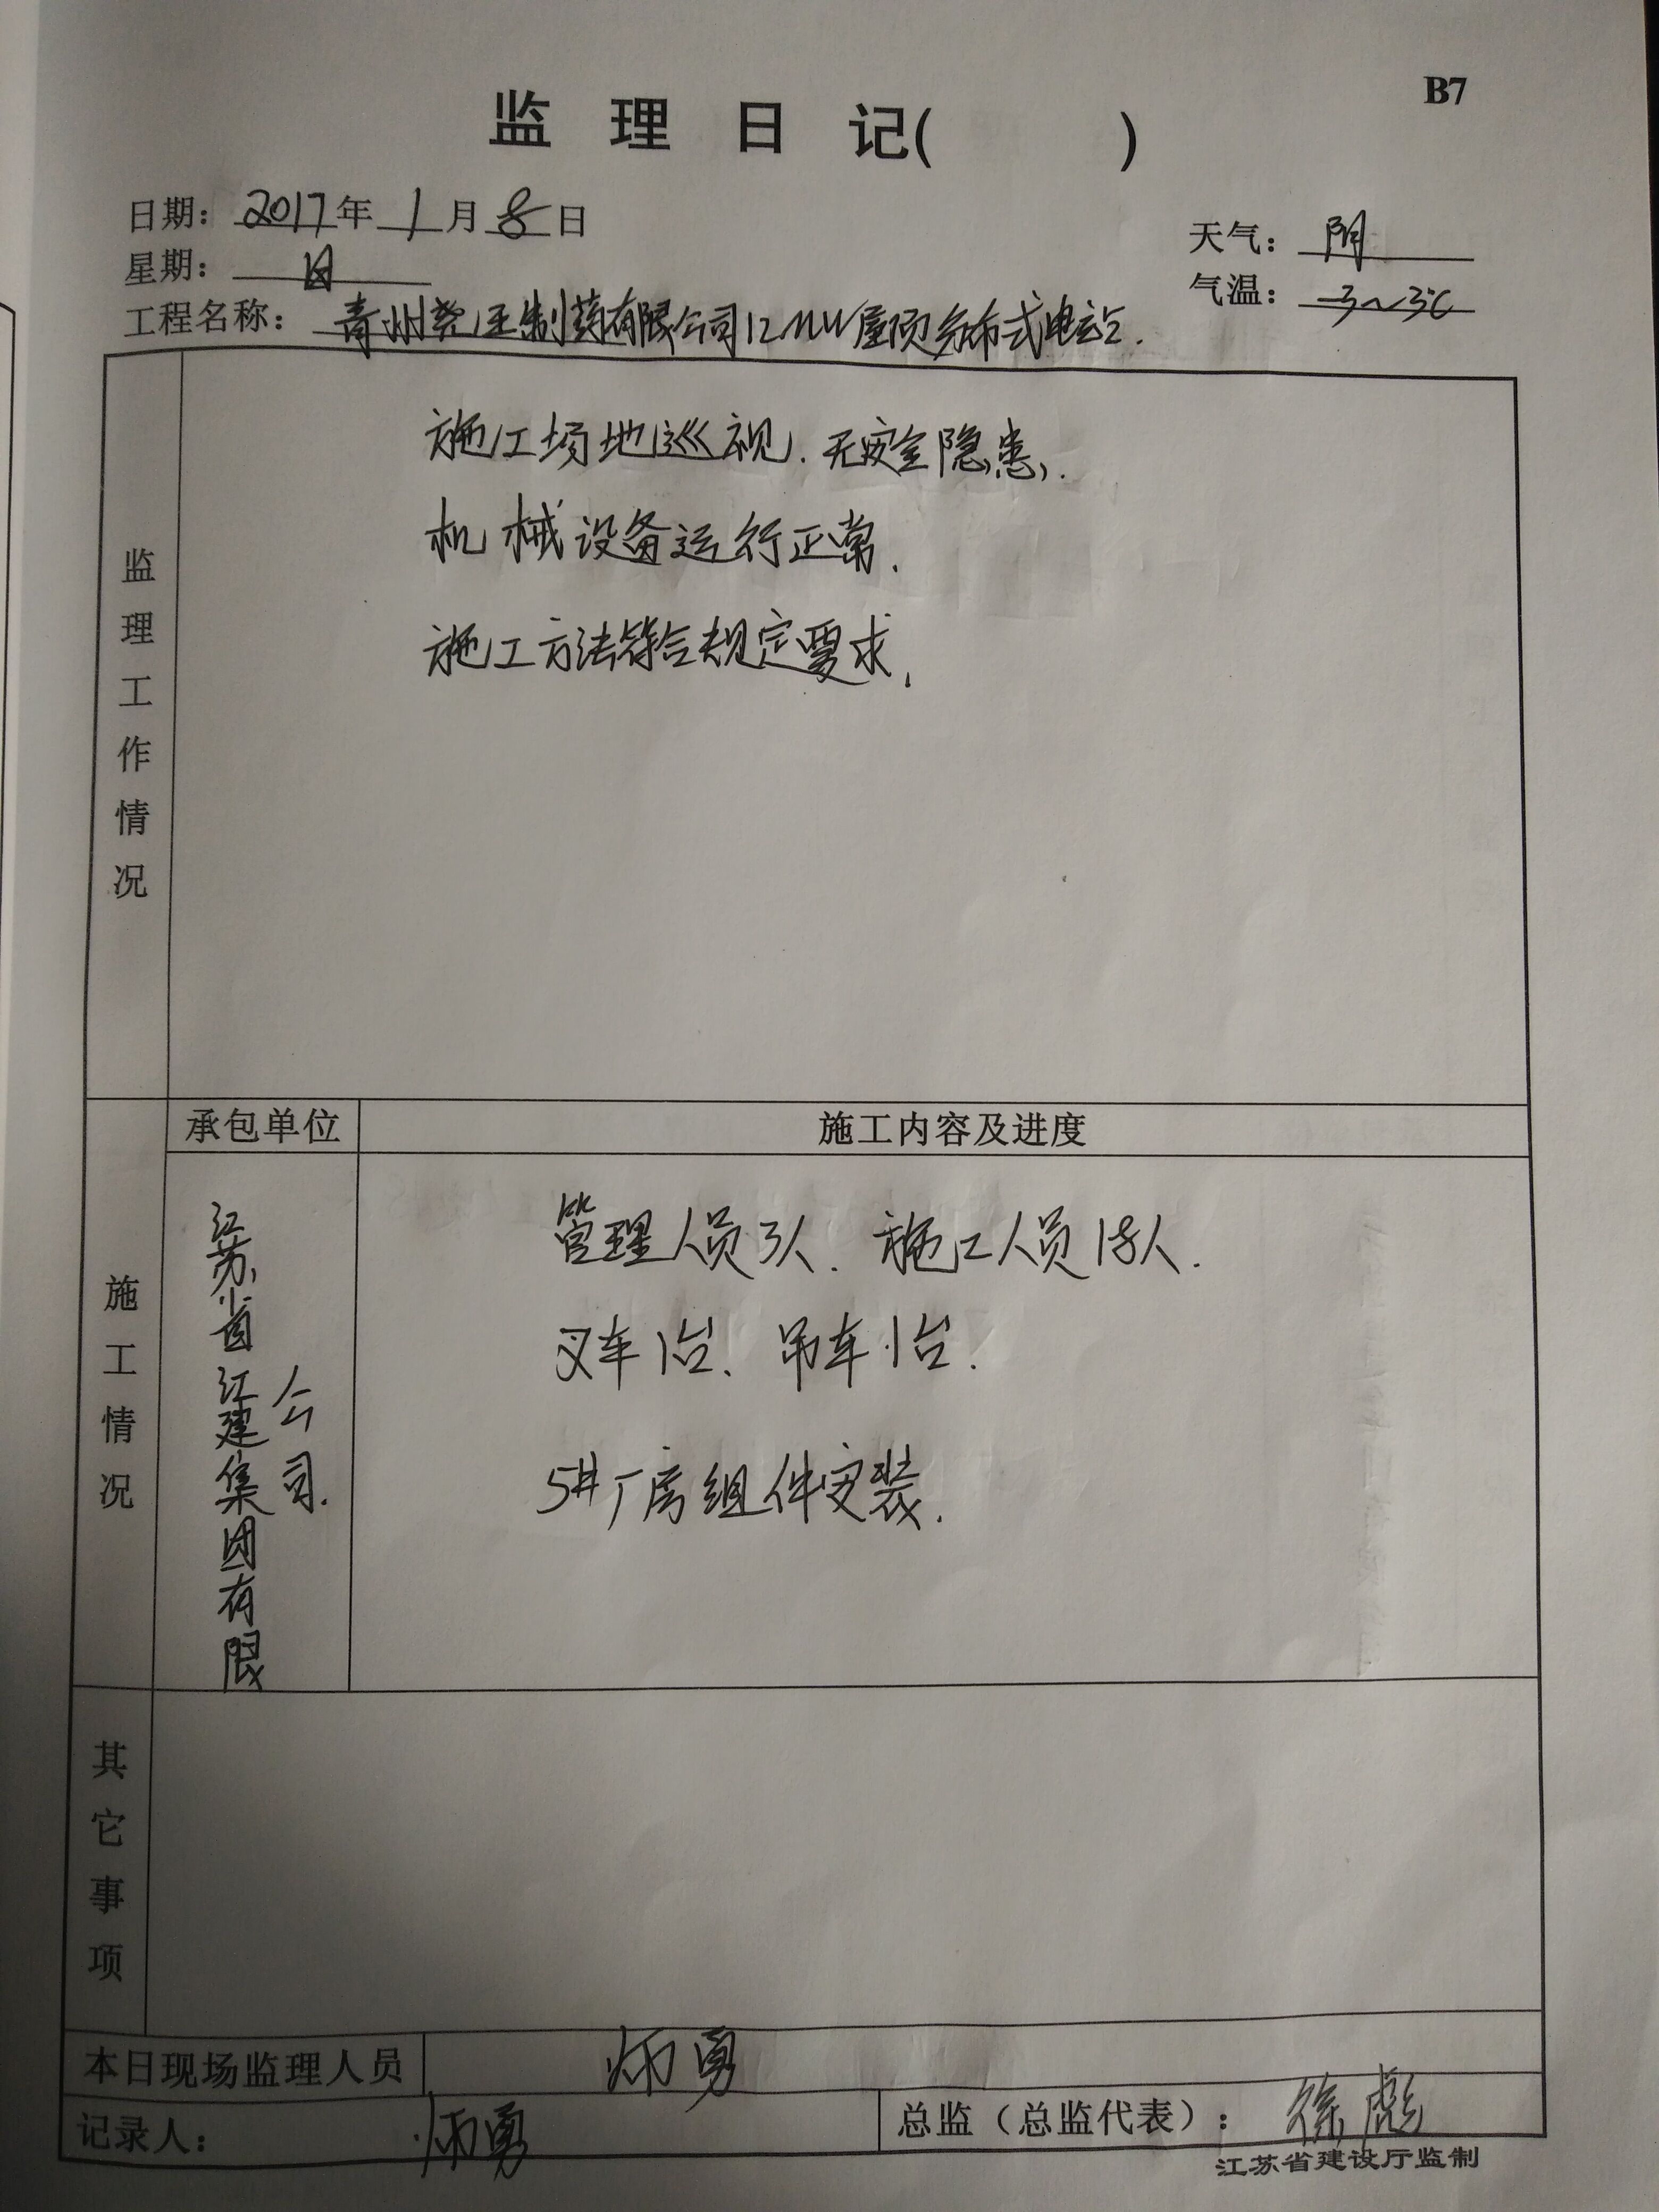 B7
监理日记(　　)
日期：2017年1月8日
星期：日
天气：阴
气温：-3~3℃
工程名称：青州尧王制药有限公司12MW屋顶分布式电站.
监理工作情况
施工场地巡视.无安全隐患.
机械设备运行正常.
施工方法符合规定要求.
承包单位
施工内容及进度
施工情况
江苏省江建集团有限
公司.
管理人员3人.施工人员18人.
叉车1台、吊车1台.
5#厂房组件安装.
其它事项
本日现场监理人员
勇
记录人：
勇
总监（总监代表）：徐彪
江苏省建设厅监制